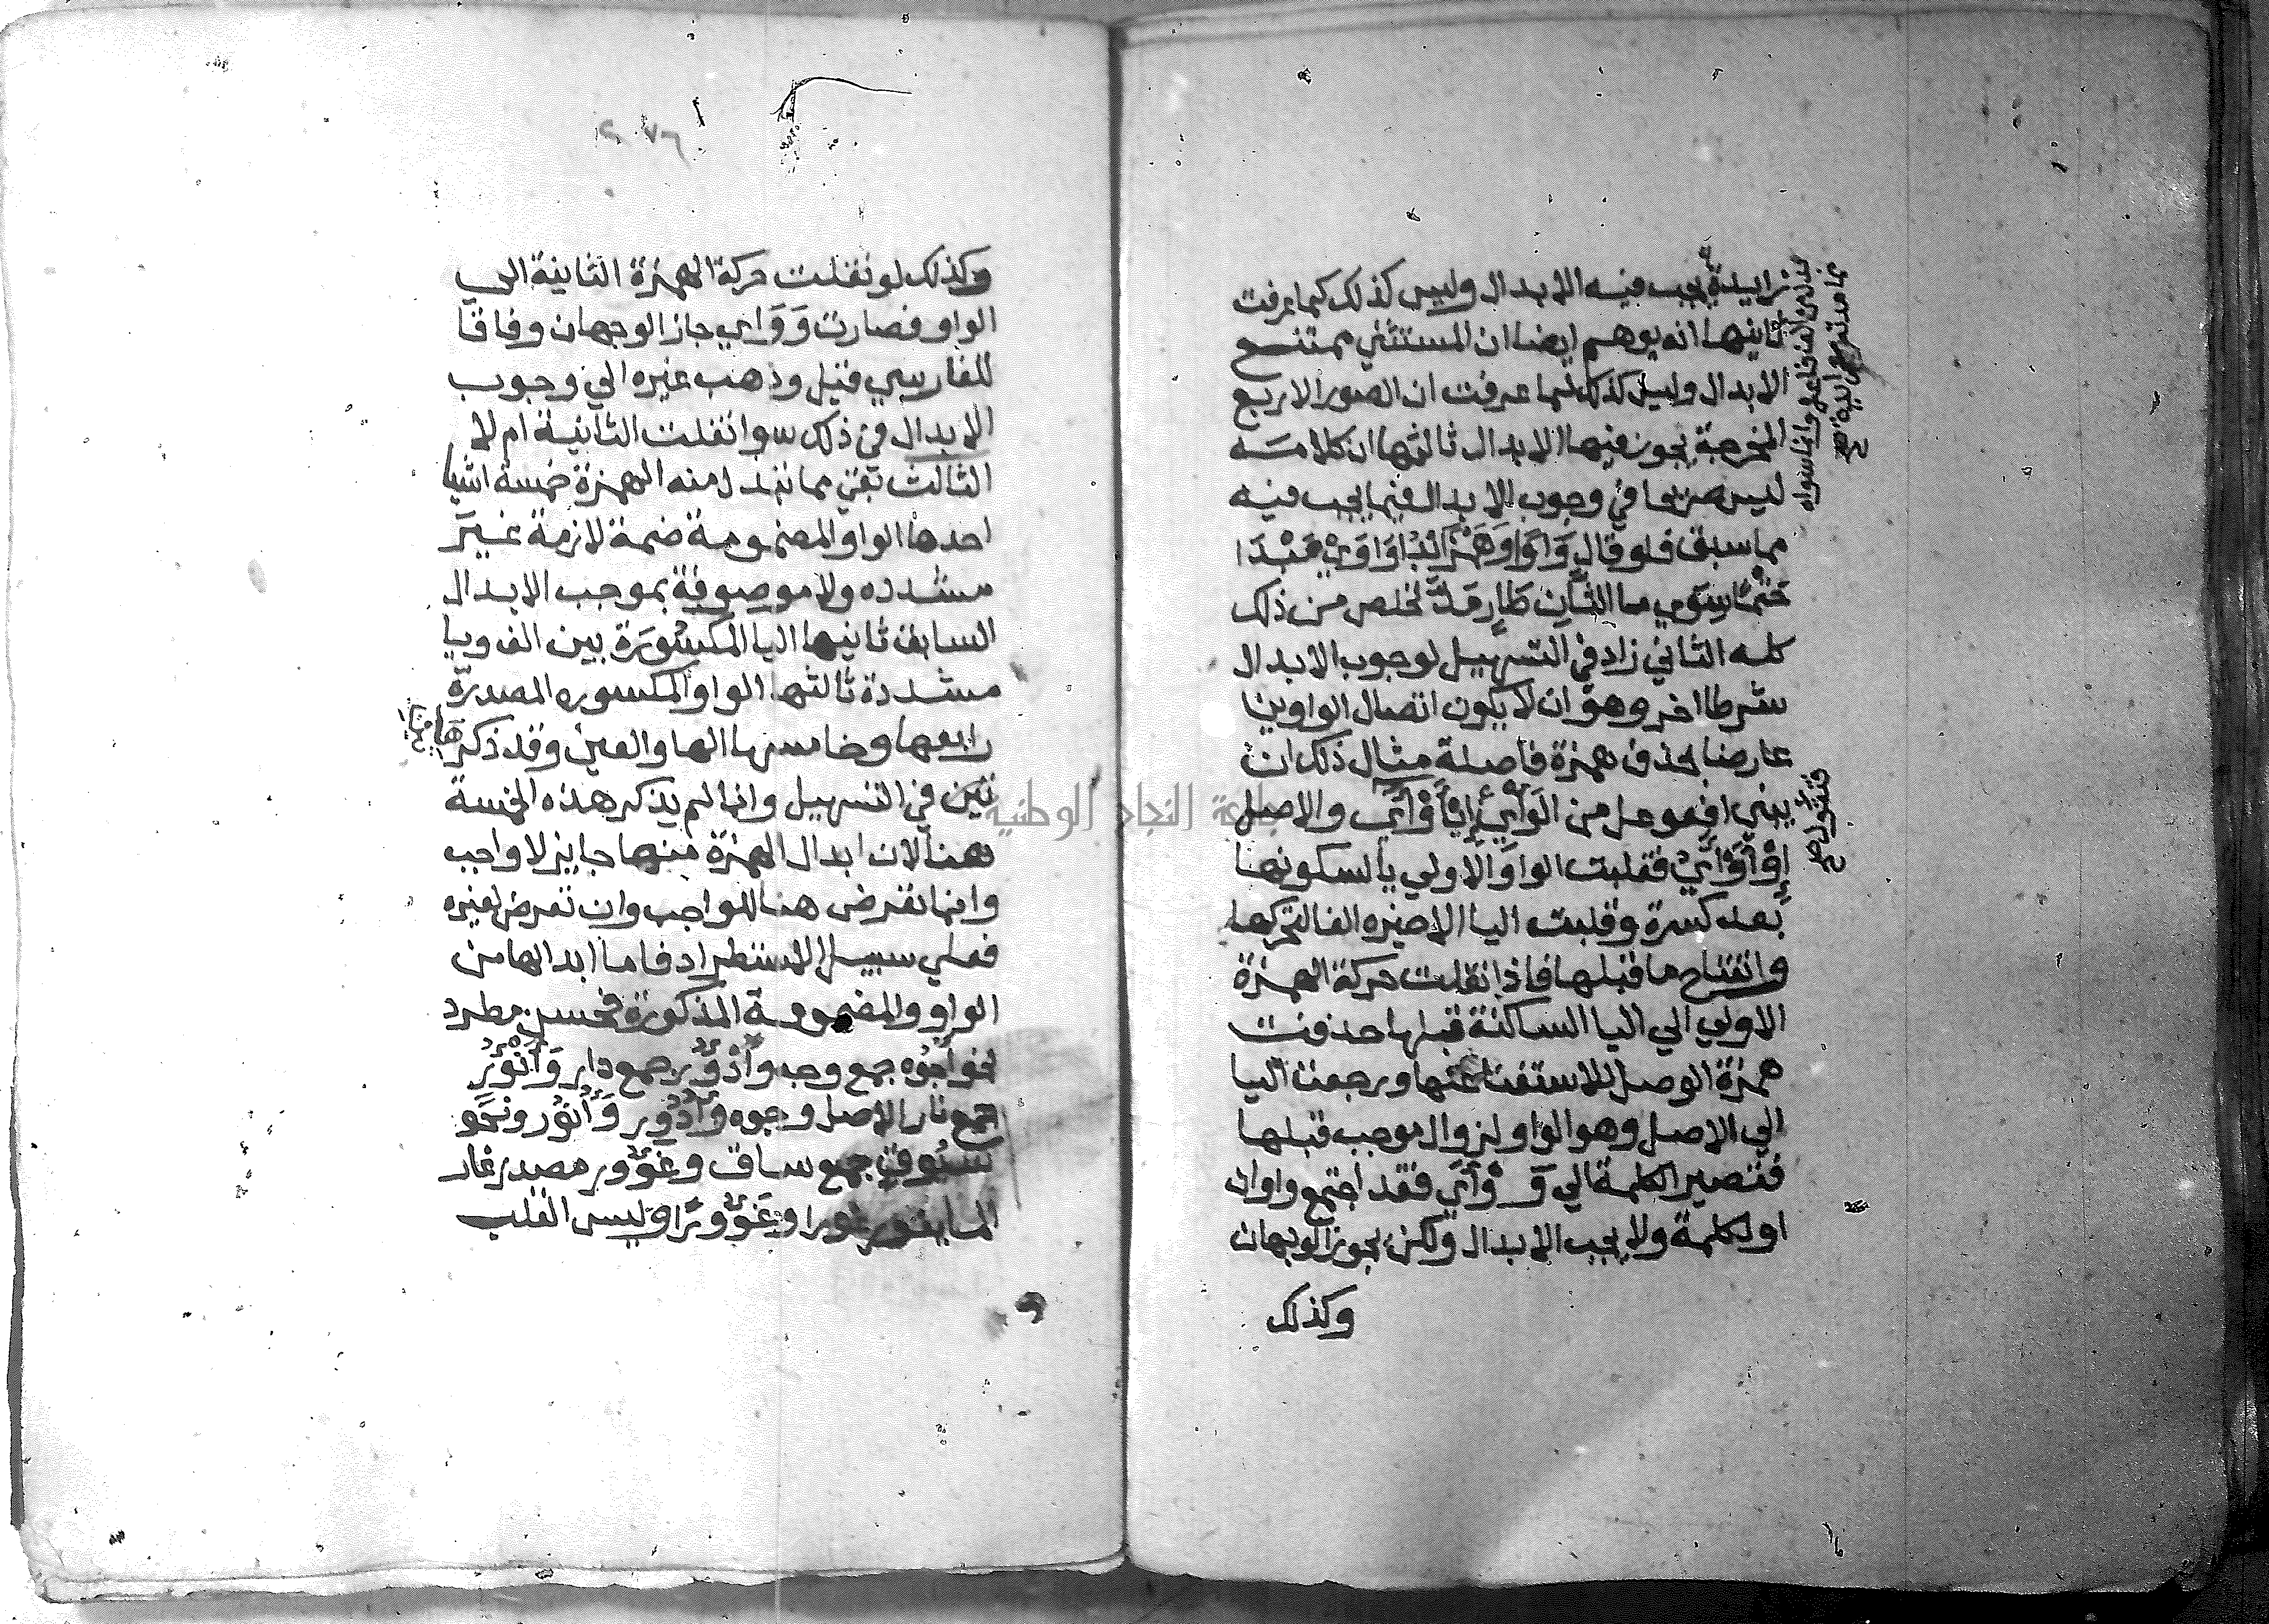 زايدة يجب فيه الابدال وليس كذلك كما عرفت
ثانيها انه يوهم ايضا ان المستثني ممتنع
الابدال وليس كذلك لما عرفت ان الصور الاربع
المخرجة يجوز فيها الابدال ثالثها ان كلامه
ليس صريحا في وجوب الابدال فيما يجب فيه
مما سبق فلو قال
حتما سوي ما الثان طار مد تخلص من ذلك
كله الثاني زاد في التسهيل لوجوب الابدال
شرطا اخر وهو ان لا يكون اتصال الواوين
عارضا بحذف همزة فاصلة مثال ذلك ان
يبني افعوعل من الوأي والاصل
فقلبت الواو الاولي يا لسكونها
بعد كسرة وقلبت اليا الاخيره الفا لتحركها
وانفتاح ما قبلها فاذا نقلت حركة الهمزة
الاولي الي اليا الساكنة قبلها حذفت
همزة الوصل للاستغنا عنها ورجعت اليا
الي الاصل وهو الواو لزوال موجب قبلها
فتصير الكلمة الي ووأي فقد اجتمع واوان
اول كلمة ولا يجب الابدال ولكن يجوز الوجهان
وكذلك
فتقول
وكذلك لو نقلت حركة الهمزة الثانية الي
الواو فصارت وواي جاز الوجهان وفاقا
للفارسي قيل وذهب غيره الي وجوب
الابدال في ذلك سوا نقلت الثانية ام لا
الثالث بقي مما تبدل منه الهمزة خمسة اشيا
احدها الواو المضمومة ضمة لازمة غير
مشدده ولا موصوفة بموجب الابدال
السابق ثانيها اليا المكسورة بين الف ويا
مشددة ثالثها الواو المكسوره المصدرة
رابعها وخامسها الها والعين وقد ذكر
في التسهيل وانما لم يذكر هذه الخمسة
هنا لان ابدال الهمزة منها جايز لا واجب
وانما تعرض هنا للواجب وان تعرض لغيره
فعلي سبيل الاستطراد فاما ابدالها من
الواو المضمومة المذكورة فحسن مطرد
نحو اجوه جمع وجه وأدؤر جمع دار وأنؤر
جمع نار الاصل وجوه وأدور وأنور ونحو
سؤوق جمع ساق وغؤور مصدر غار
الما يغور غورا وغؤورا وليس القلب